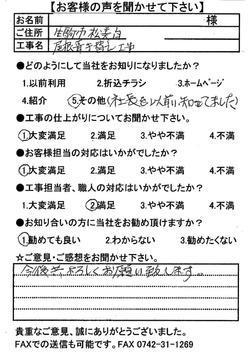 【お客様の声を聞かせて下さい】
お名前 様
ご住所 生駒市松美台
工事名 屋根葺き替え工事
●どのようにして当社をお知りになりましたか?
1.以前利用 2.折込チラシ 3.ホームページ
4.紹介 ⑤その他(社長を以前から知ってました)
●工事の仕上がりについてお聞かせ下さい。
①大変満足 2.満足 3.やや不満 4.不満
●お客様担当の対応はいかがでしたか?
①大変満足 2.満足 3.やや不満 4.不満
●工事担当者、職人の対応はいかがでしたか?
1.大変満足 ②満足 3.やや不満 4.不満
●お知り合いの方に当社をお勧め頂けますか?
①勧めても良い 2.わからない 3.勧めたくない
☆ご意見・ご感想をお聞かせ下さい。
今後共よろしくお願い致します。
貴重なご意見、誠にありがとうございました。
FAXでの送信も可能です。FAX 0742-31-1269